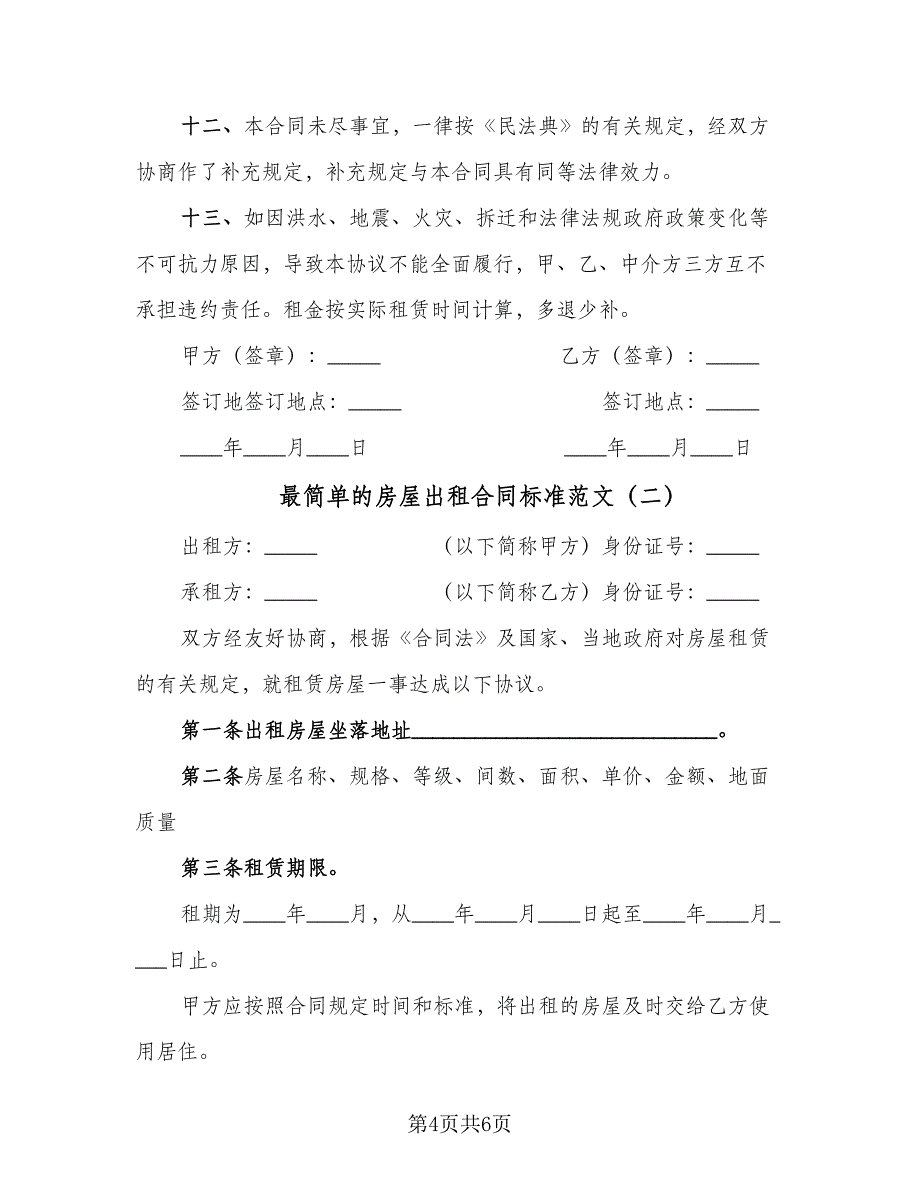 十二、本合同未尽事宜，一律按《民法典》的有关规定，经双方
协商作了补充规定，补充规定与本合同具有同等法律效力。
十三、如因洪水、地震、火灾、拆迁和法律法规政府政策变化等
不可抗力原因，导致本协议不能全面履行，甲、乙、中介方三方互不
承担违约责任。租金按实际租赁时间计算，多退少补。
甲方（签章）：_____ 乙方（签章）：_____
签订地签订地点：_____ 签订地点：_____
____年____月____日 ____年____月____日
最简单的房屋出租合同标准范文（二）
出租方：_____ （以下简称甲方）身份证号：_____
承租方：_____ （以下简称乙方）身份证号：_____
双方经友好协商，根据《合同法》及国家、当地政府对房屋租赁
的有关规定，就租赁房屋一事达成以下协议。
第一条出租房屋坐落地址_____________________________。
第二条房屋名称、规格、等级、间数、面积、单价、金额、地面
质量
第三条租赁期限。
租期为____年____月，从____年____月____日起至____年____月_
___日止。
甲方应按照合同规定时间和标准，将出租的房屋及时交给乙方使
用居住。
第4页共6页